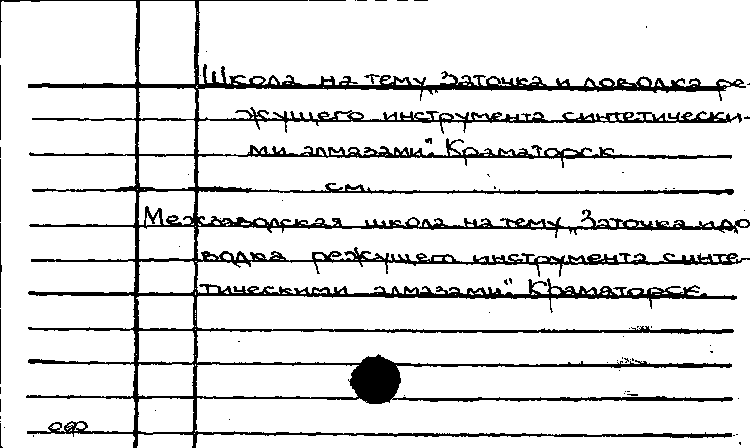 Школа на тему „Заточка и доводка ре-
жущего инструмента синтетически-
ми алмазами". Краматорск
см.
Межзаводская школа на тему „Заточка и до
водка режущего инструмента синте-
тическими алмазами". Краматорск.